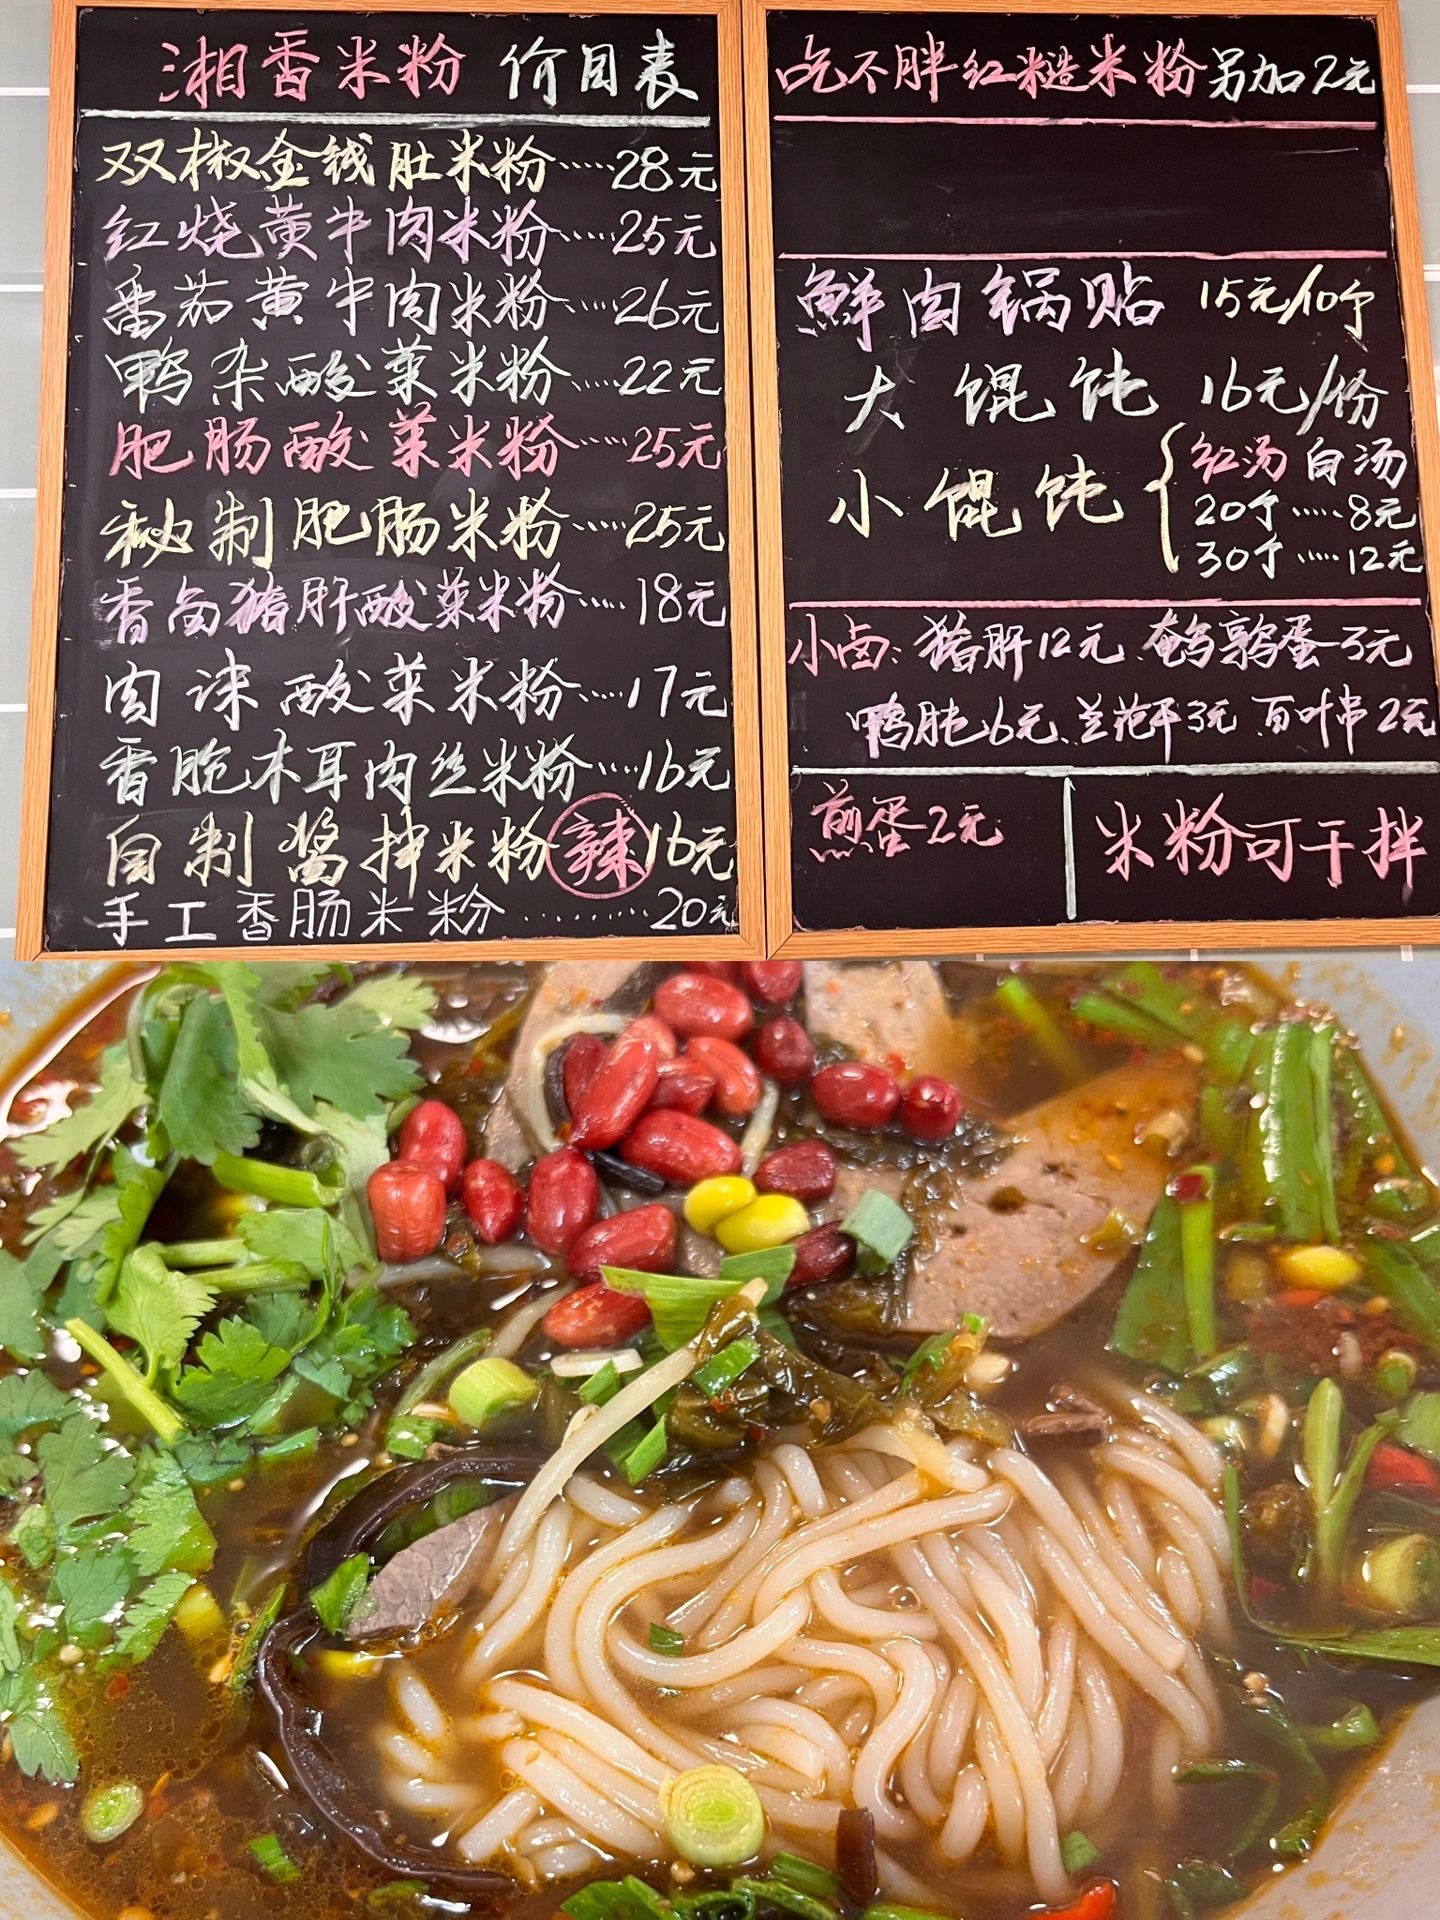 湘香米粉 价目表
双椒金钱肚米粉……28元
红烧黄牛肉米粉……25元
番茄黄牛肉米粉……26元
鸭杂酸菜米粉……22元
肥肠酸菜米粉……25元
秘制肥肠米粉……25元
香卤猪肝酸菜米粉……18元
肉沫酸菜米粉……17元
香脆木耳肉丝米粉……16元
自制酱拌米粉 辣 16元
手工香肠米粉………20元
吃不胖红糙米粉另加2元
鲜肉锅贴 15元/10个
大馄饨 16元/份
小馄饨
红汤 白汤
20个……8元
30个……12元
小卤:猪肝12元、鹌鹑蛋3元
鸭肫6元、兰花干3元、百叶串2元
煎蛋2元
米粉可干拌